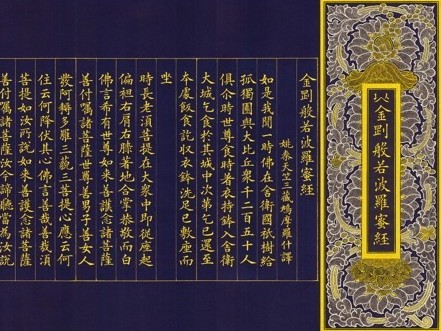 金剛般若波羅蜜經
金剛般若波羅蜜經
姚秦天竺三藏鳩摩羅什譯
如是我聞一時佛在舍衛國祇樹給
孤獨園與大比丘眾千二百五十人
俱尒時世尊食時著衣持鉢入舍衛
大城乞食於其城中次第乞已還至
本處飯食訖収衣鉢洗足已敷座而
坐
時長老須菩提在大眾中即從座起
偏袒右肩右膝著地合掌恭敬而白
佛言希有世尊如來善護念諸菩薩
善付囑諸菩薩世尊善男子善女人
發阿耨多羅三藐三菩提心應云何
住云何降伏其心佛言善哉善哉須
菩提如汝所說如來善護念諸菩薩
善付囑諸菩薩汝今諦聽當為汝說